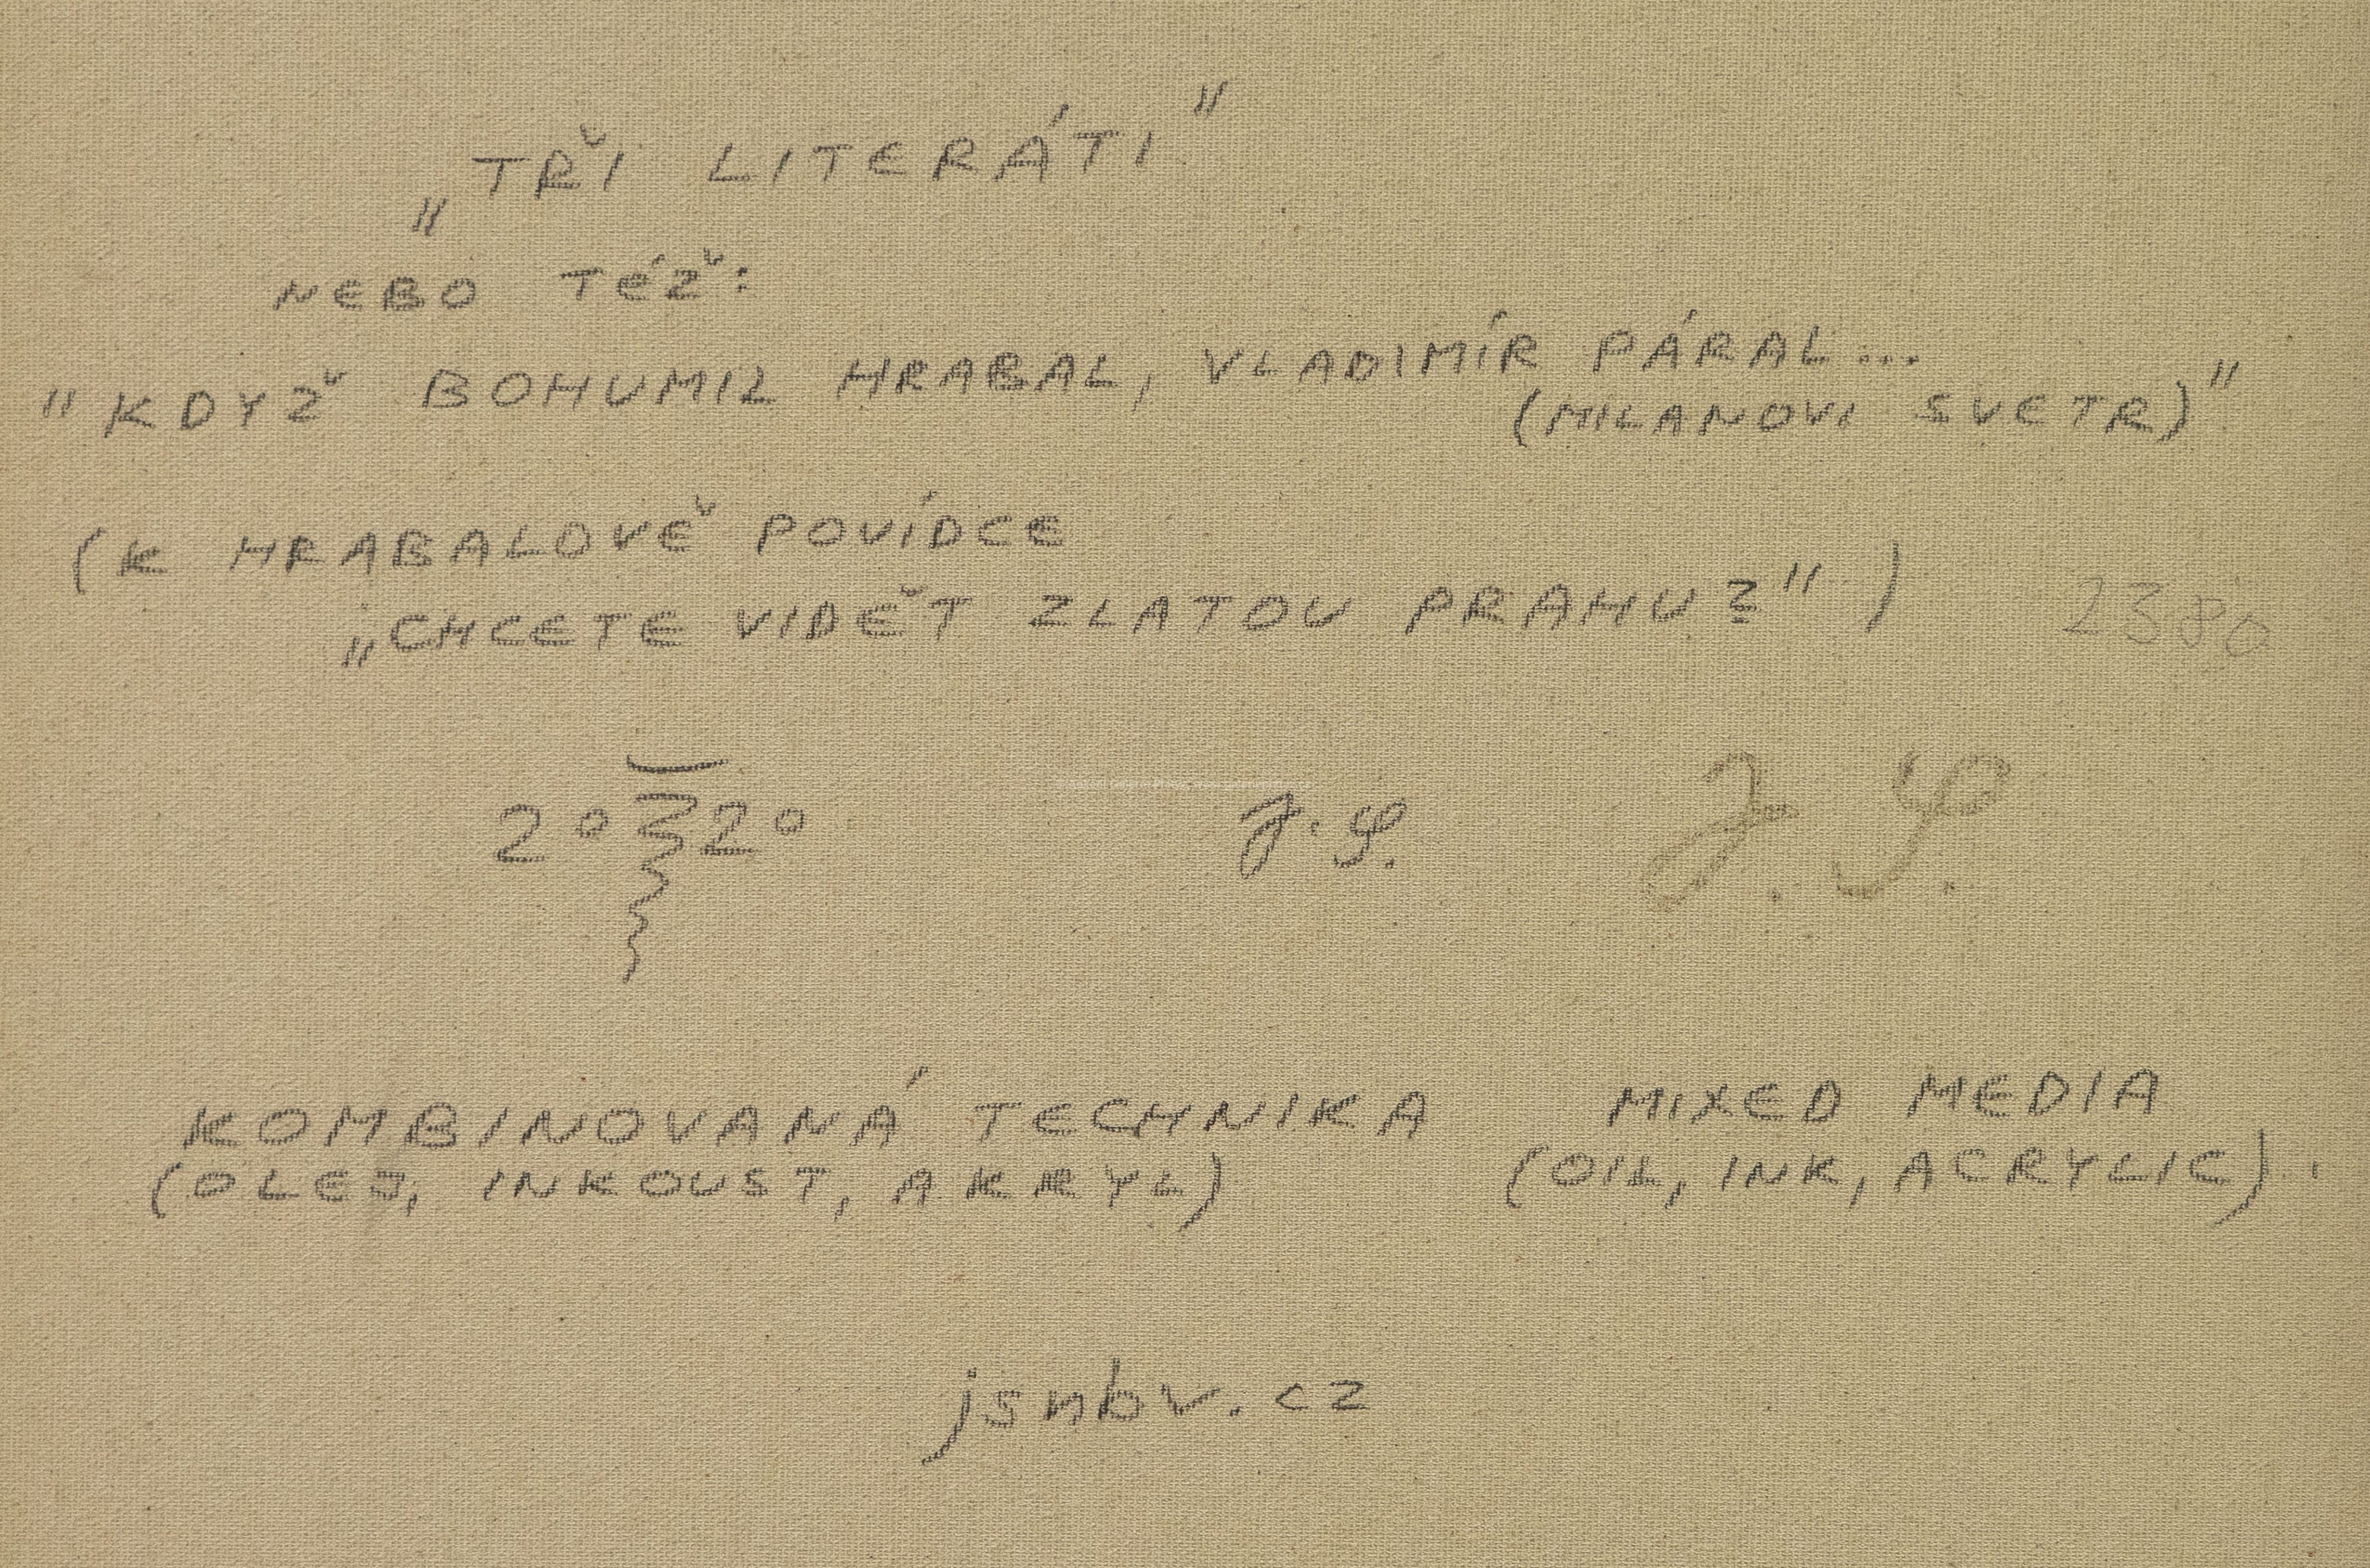 „TŘI LITERÁTI"
NEBO TÉŽ:
"KDYŽ BOHUMIL HRABAL, VLADIMÍR PÁRAL...
(MILANOVI SVETR)"
(K HRABALOVĚ POVÍDCE
„CHCETE VIDĚT ZLATOU PRAHU?")
2380
2° 2° J.S. J.S.
KOMBINOVANÁ TECHNIKA MIXED MEDIA
(OLEJ, INKOUST, AKRYL) (OIL, INK, ACRYLIC)
jsnbv.cz